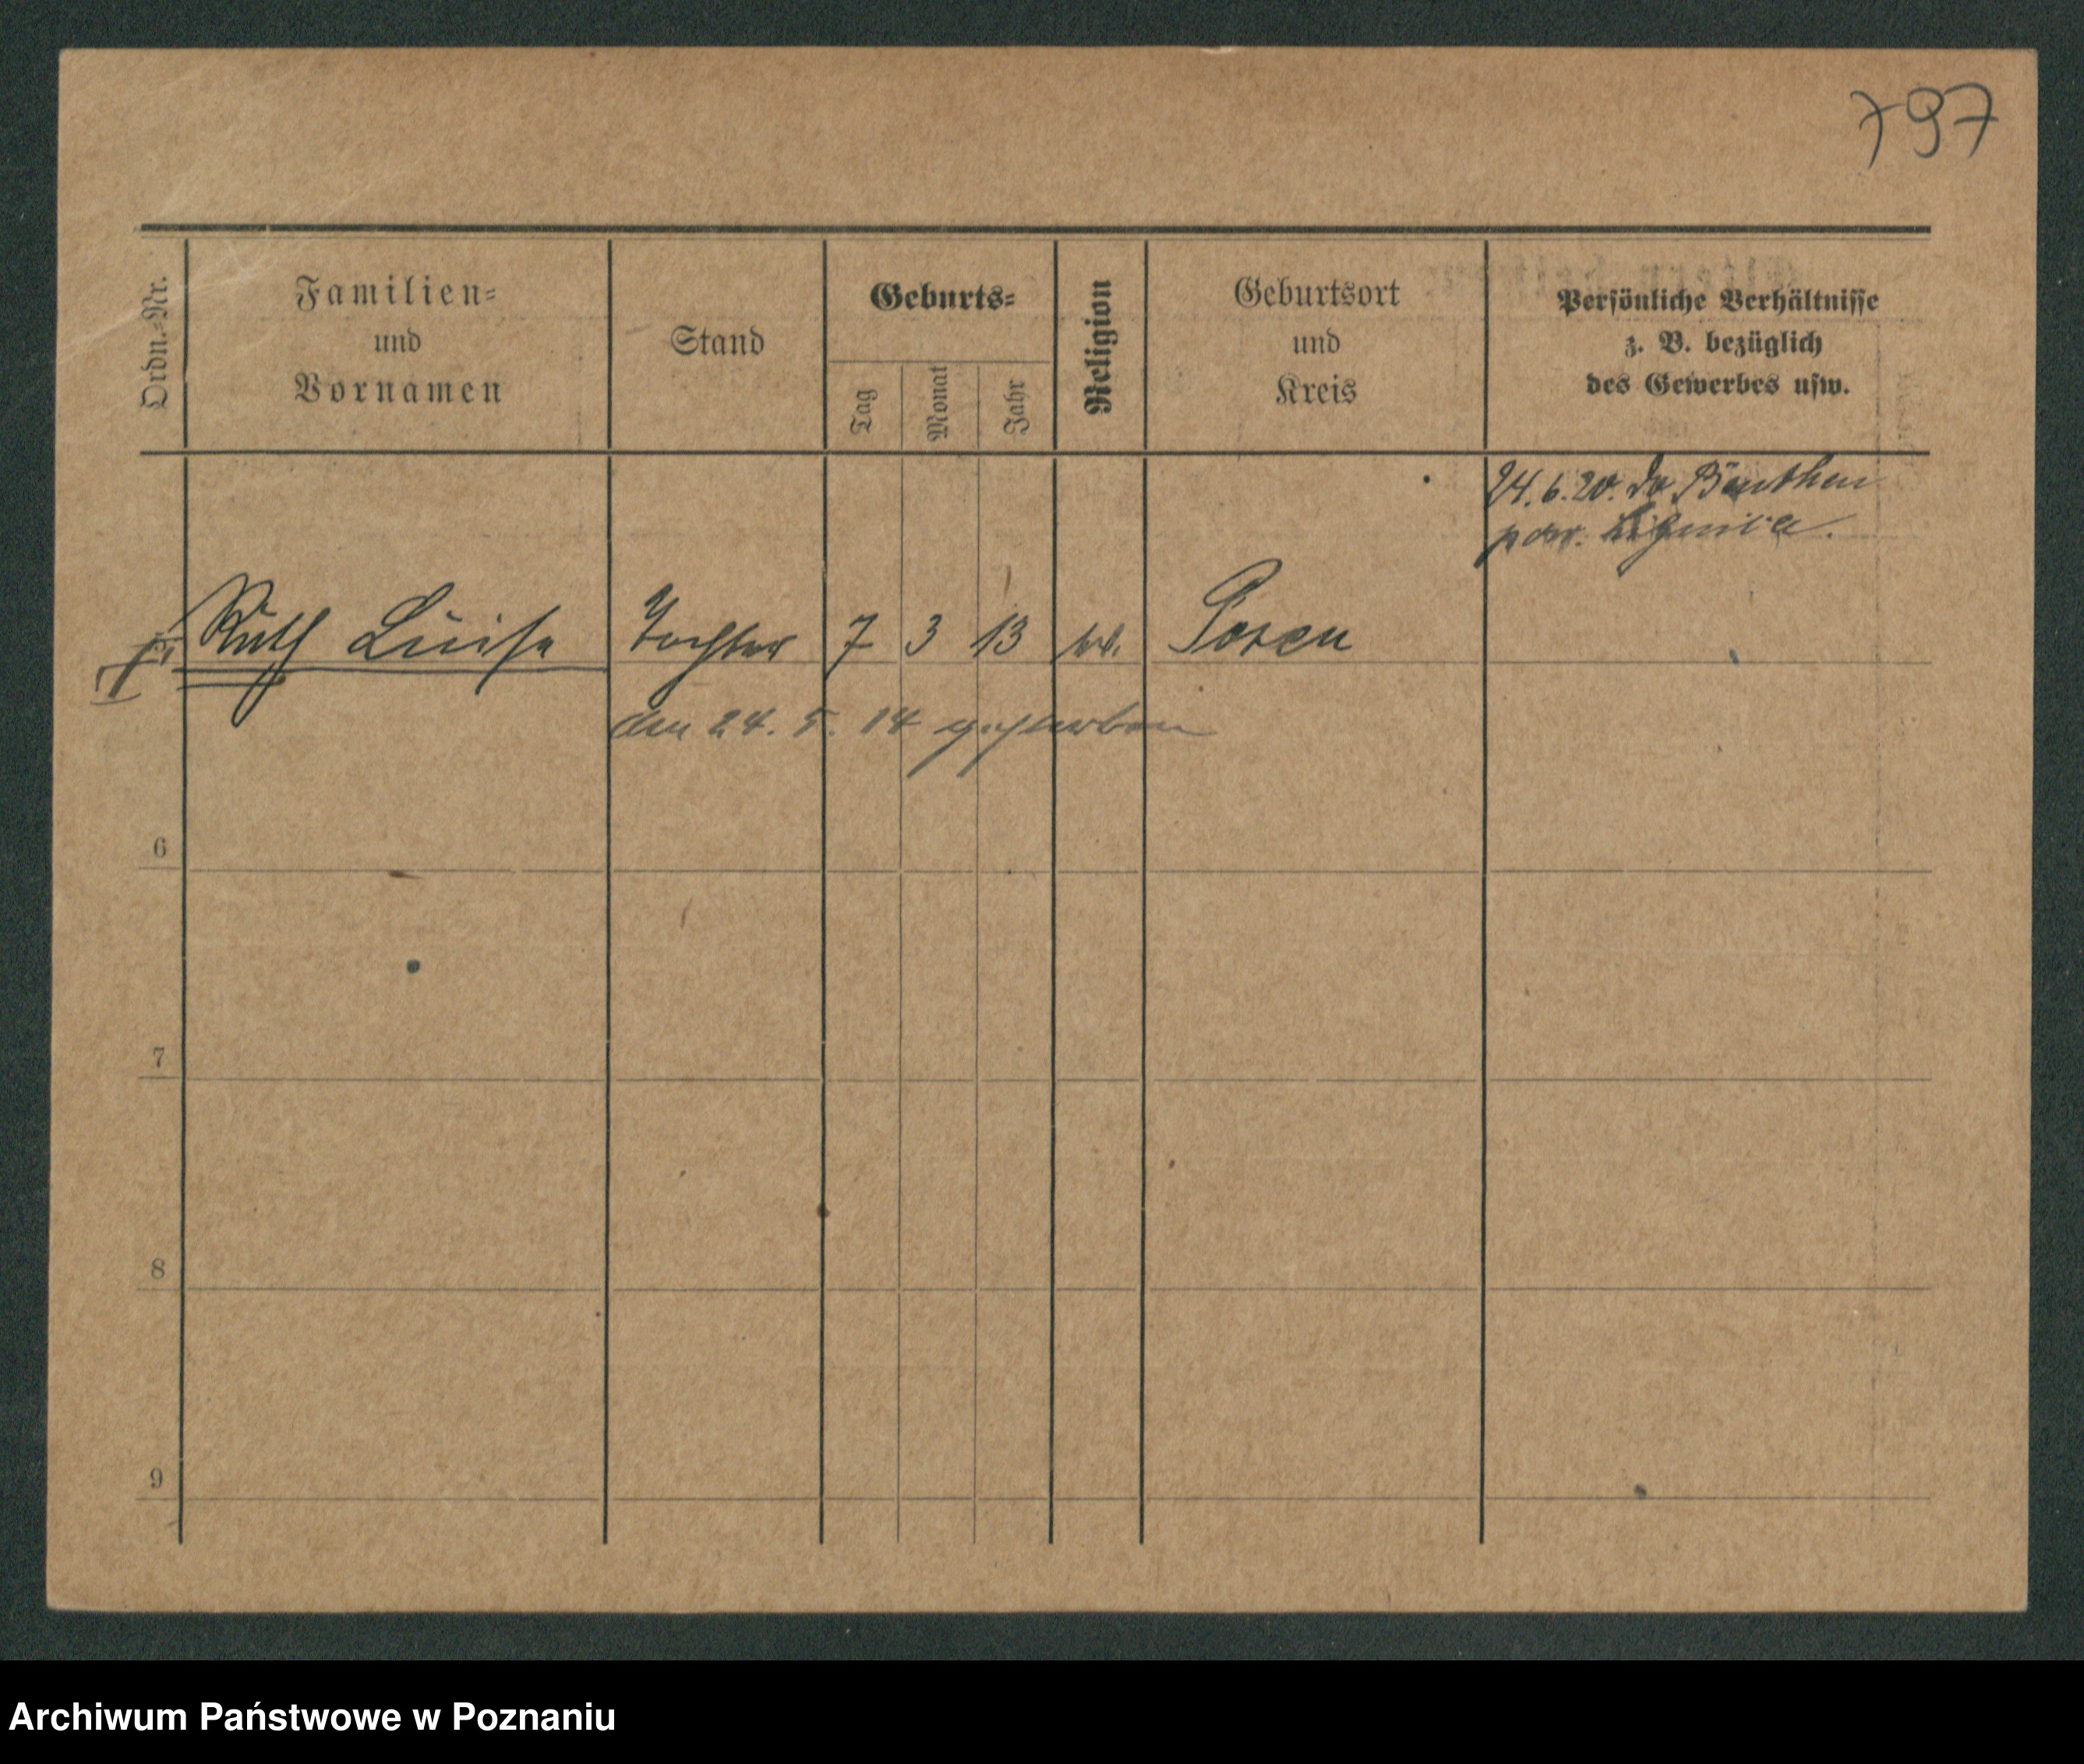 797
Ordn.-Nr.
Familien-
und
Vornamen
Stand
Geburts-
Tag
Monat
Jahr
Religion
Geburtsort
und
Kreis
Persönliche Verhältnisse
z. B. bezüglich
des Gewerbes usw.
24.6.20. do Beuthen
pow. Lignica.
Ruth Luise Tochter 7 3 13 Posen
den 24. 5. 14 gestorben
6
7
8
9
Archiwum Państwowe w Poznaniu